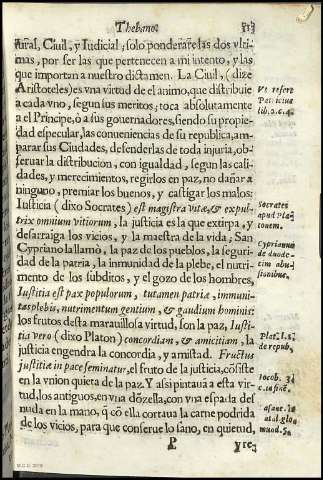 Thebano.
313
tural, Ciuil, y Iudicial; solo ponderare las dos vlti-
mas, por ser las que pertenecen a mi intento, y las
que importan a nuestro dictamen. La Ciuil, (dize
Aristoteles) es vna virtud de el animo, que distribuie
a cada vno, segun sus meritos; toca absolutamente
a el Principe, ò a sus gouernadores, siendo su propie-
dad especular, las conueniencias de su republica, am-
parar sus Ciudades, defenderlas de toda injuria, ob-
seruar la distribucion, con igualdad, segun las cali-
dades, y merecimientos, regirlos en paz, no dañar a
ninguno, premiar los buenos, y castigar los malos:
Iusticia (dixo Socrates) est magistra vitæ, & expul-
trix omnium vitiorum, la justicia es la que extirpa, y
desarraiga los vicios, y la maestra de la vida, San
Cypriano la llamò, la paz de los pueblos, la seguri-
dad de la patria, la inmunidad de la plebe, el nutri-
mento de los subditos, y el gozo de los hombres,
Iustitia est pax populorum, tutamen patriæ, immuni-
tas plebis, nutrimentum gentium, & gaudium hominis:
los frutos desta marauillosa virtud, son la paz, Iusti-
tia vero (dixo Platon) concordiam, & amicitiam, la
justicia engendra la concordia, y amistad. Fructus
justitiæ in pace seminatur, el fruto de la justicia, cõsiste
en la vnion quieta de la paz. Y asi pintauã a esta vir-
tud, los antiguos, en vna dõzella, con vna espada des
nuda en la mano, q̃ cõ ella cortaua la carne podrida
de los vicios, para que conserue lo sano, en quietud,
P
yre-
Vt refert
Patricius
lib. 2. c. 4.
Socrates
apud Pla-
tonem.
Cyprianus
de duode-
cim abu-
sionibus.
Plat. l. 1.
de repub.
Iacob. 3.
c. in fine.